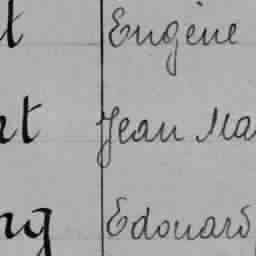 t Eugène
rt Jean Ma
ng Edouard